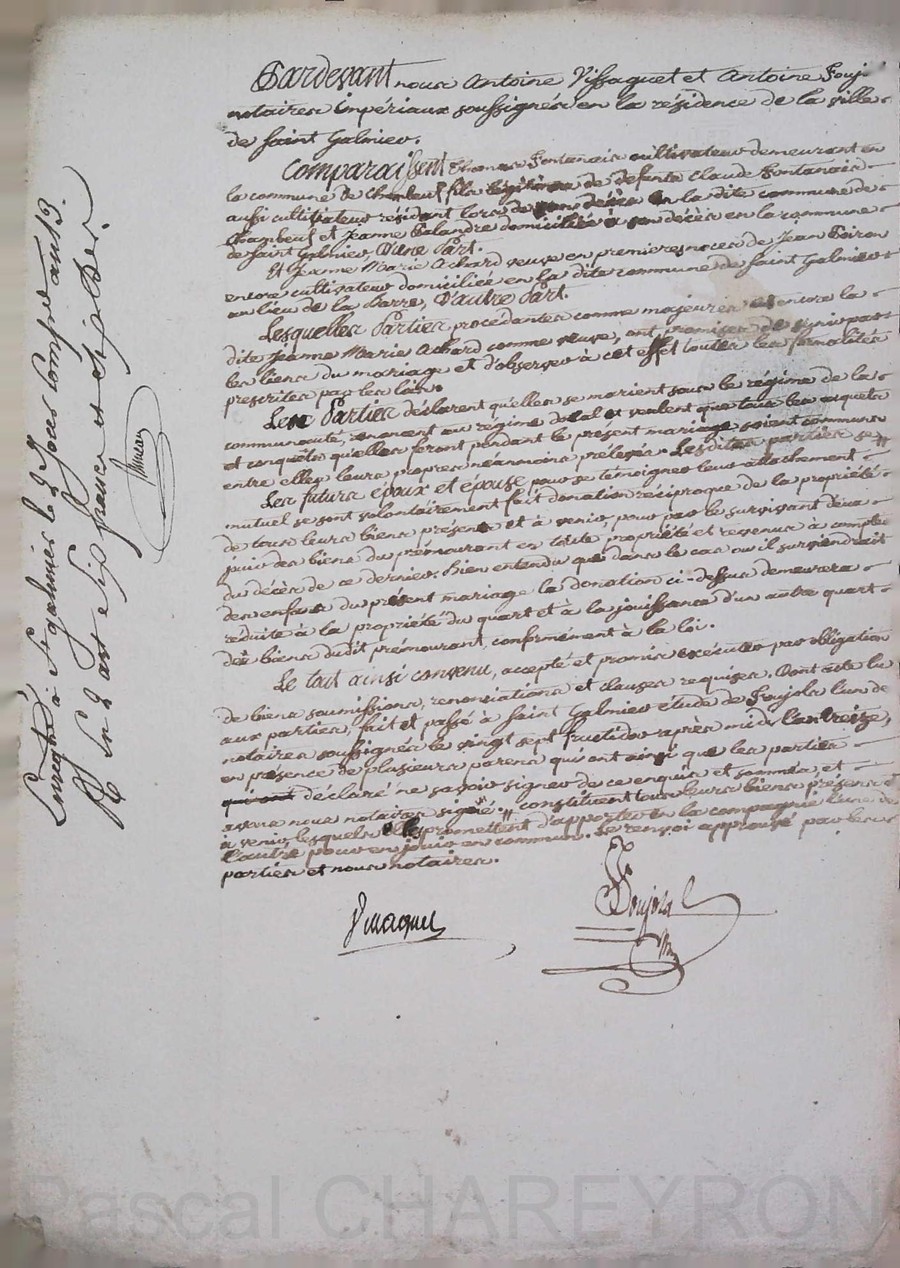 Pardevant nous Antoine Vissaguet et Antoine Fouj
notaires impériaux soussignés en la résidence de la ville
de Saint Galmier.
Comparaissent Thomas Fontanais cultivateur demeurant en
la commune de Chambeuf fils légitime de défunts Claude Fontanais
aussi cultivateur résidant lors de son décès en la dite commune de
Chambeuf et Jeanne Palandre domiciliée à son décès en la commune
de Saint Galmier, D'une Part.
Et Jeanne Marie Achard veuve en premieres noces de Jean Poiron
encore cultivateur domiciliée en la dite commune de Saint Galmier
au lieu de la Barre, D'autre Part.
Lesquelles Parties procédantes comme majeures et encore la
dite Jeanne Marie Achard comme veuve, ont promises de s'unir par
les liens du mariage et d'observer à cet effet toutes les formalités
prescrites par les lois.
Les Parties déclarent qu'elles se marient sous le régime de la
communauté, renoncent au régime dotal et veulent que tous les acquets
et conquets qu'elles feront pendant le présent mariage soient communs
entre elles, leurs propres néanmoins prélevés. Lesdites parties se "
Les futurs époux et épouse pour se témoigner leur attachement
mutuel se sont volontairement fait donation réciproque de la propriété
de tous leurs biens présents et à venir, pour par le survivant d'eux
jouir des biens du prémourant en toute propriété et revenus à compter
du décès de ce dernier. Bien entendu que dans le cas ou il surviendrait
des enfants du présent mariage la donation ci-dessus demeurera
réduite à la propriété du quart et à la jouissance d'un autre quart
des biens dudit prémourant, conformément à la loi.
Le tout ainsi convenu, accepté et promis exécuter par obligation
de biens soumissions, renonciations et clauses requises. Dont acte lu
aux parties, fait et passé à Saint Galmier étude de Foujols l'un de
notaires soussignés le vingt sept fructidor après midi l'an treize,
en présence de plusieurs parens qui ont ainsi que les parties
qui ont déclaré ne savoir signer de ce enquis et sommés et
avons nous notaires signé " constituent tous leurs biens présens et
à venir, lesquels promettent d'apporter en la compagnie l'une de
l'autre pour en jouir en commun. Le renvoi approuvé par les
parties et nous notaires.
Vissaguet
Foujols
Enregistré à St galmier le 2 Jour Comp. an 13.
Pascal CHAREYRON